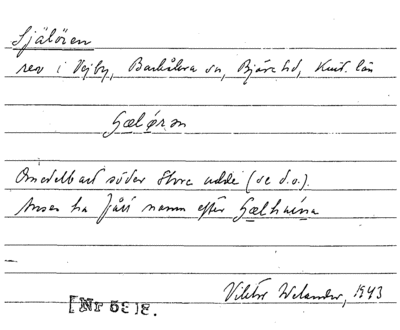 Själören
rev i Vejby, Barkåkra sn, Bjäre hd, Krist. län
Sælørsn
Omedelbart söder Stora udde (se d.o.).
Anses ha fått namn efter Sælhuina
Viktor Welander, 1943
[Nr 53]8.